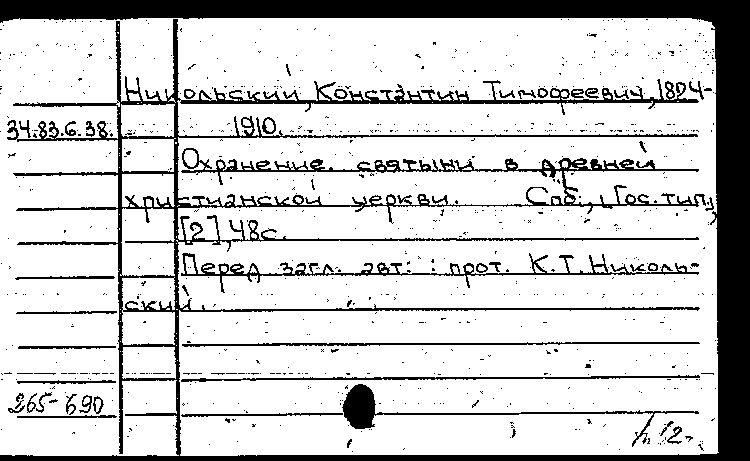 Никольский, Константин Тимофеевич, 1824-
34.83.6.38. 1910.
Охранение святыни в древней
христианской церкви. Спб., Гос. тип.,
[2], 48с.
Перед загл. авт.: прот. К.Т. Николь-
ский.
265-690